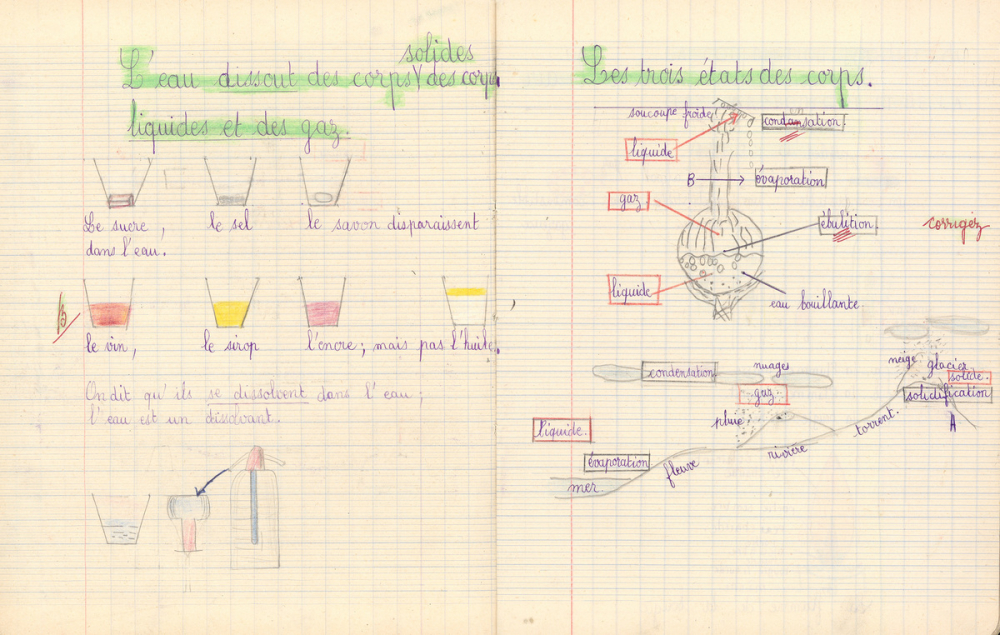 solides
L'eau dissout des corps V des corps
liquides et des gaz.
Le sucre, le sel le savon disparaissent
dans l'eau.
le vin, le sirop l'encre; mais pas l'huile.
On dit qu'ils se dissolvent dans l'eau;
l'eau est un dissolvant.
Les trois états des corps.
soucoupe froide
condansation
liquide
B
évaporation
gaz
ébulition
corrigez
liquide
eau bouillante
condensation
nuages
gaz
neige
glacier
solide.
solidification
A
pluie
torrent.
liquide.
rivière
évaporation
fleuve
mer